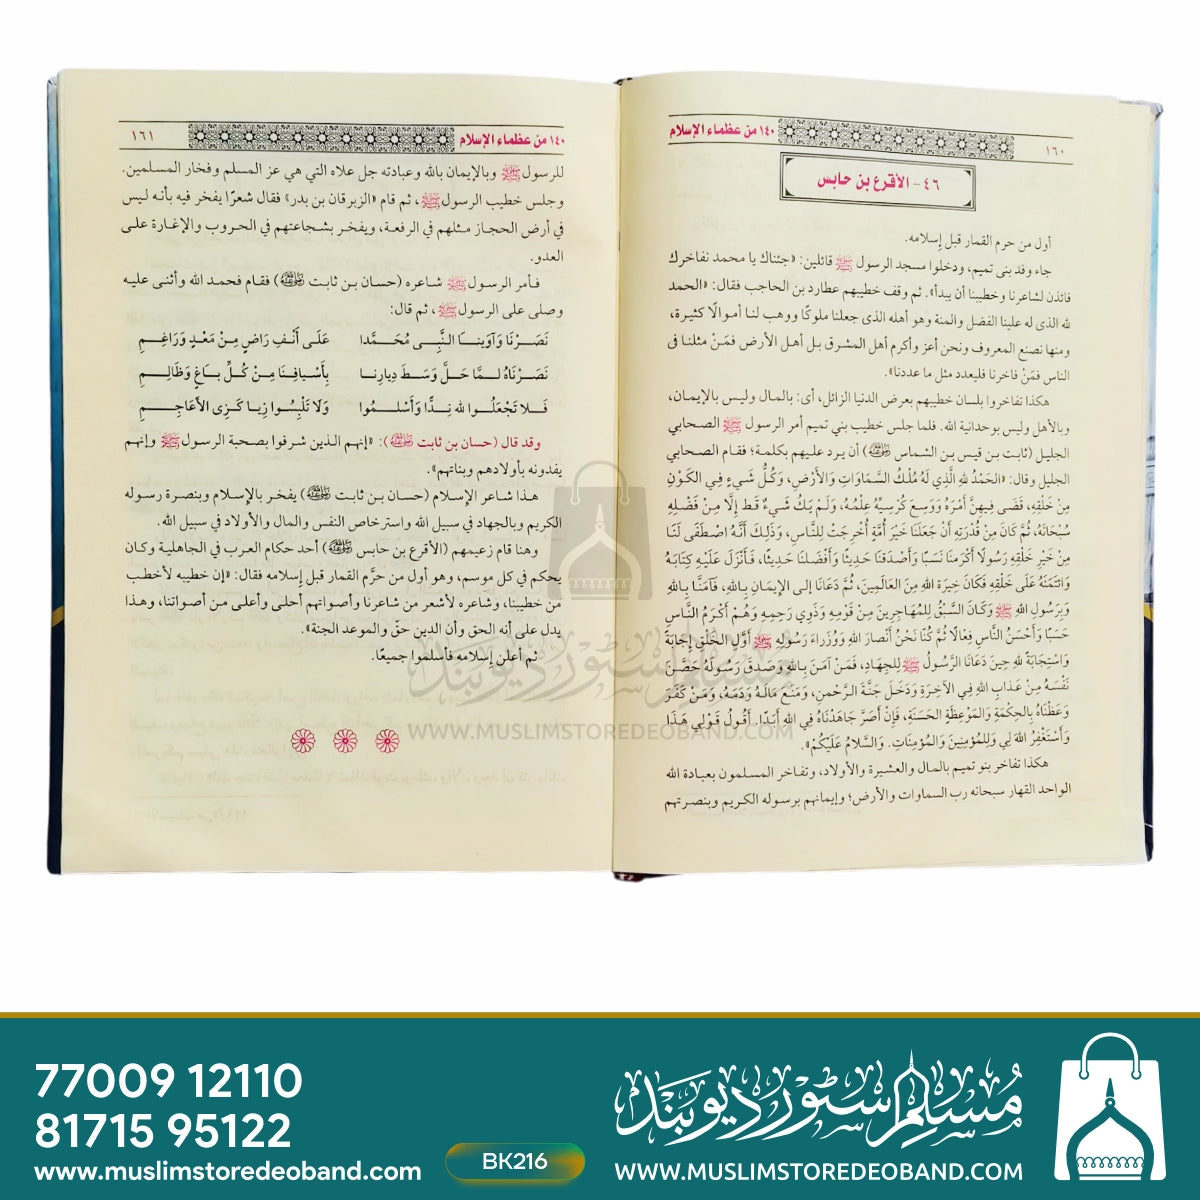 ١٦٠
١٤٠ من عظماء الإسلام
٤٦- الأقرع بن حابس
أول من حرم القمار قبل إسلامه.
جاء وفد بنى تميم، ودخلوا مسجد الرسول ﷺ قائلين: «جئناك يا محمد نفاخرك
فائذن لشاعرنا وخطيبنا أن يبدأ». ثم وقف خطيبهم عطارد بن الحاجب فقال: «الحمد
لله الذى له علينا الفضل والمنة وهو أهله الذى جعلنا ملوكًا ووهب لنا أموالًا كثيرة،
ومنها نصنع المعروف ونحن أعز وأكرم أهل المشرق بل أهل الأرض فمَنْ مثلنا فى
الناس فمَنْ فاخرنا فليعدد مثل ما عددنا».
هكذا تفاخروا بلسان خطيبهم بعرض الدنيا الزائل، أى: بالمال وليس بالإيمان،
وبالأهل وليس بوحدانية الله. فلما جلس خطيب بني تميم أمر الرسول ﷺ الصحابي
الجليل (ثابت بن قيس بن الشماس رضي الله عنه) أن يرد عليهم بكلمة؛ فقام الصحابي
الجليل وقال: «الحَمْدُ للهِ الَّذِي لَهُ مُلْكُ السَّمَاوَاتِ وَالأَرْضِ، وَكُلُّ شَيءٍ فِي الكَوْنِ
مِنْ خَلْقِهِ، قَضَى فِيهِنَّ أَمْرَهُ وَوَسِعَ كُرْسِيُّهُ عِلْمُهُ، وَلَمْ يَكُ شَيءٌ قَط إِلَّا مِنْ فَضْلِهِ
سُبْحَانَهُ، ثُمَّ كَانَ مِنْ قُدْرَتِهِ أَنْ جَعَلَنَا خَيْرَ أُمَّةٍ أُخْرِجَتْ لِلنَّاسِ، وَذَلِكَ أَنَّهُ اصْطَفَى لَنَا
مِنْ خَيْرِ خَلْقِهِ رَسُولًا أَكْرَمَنَا نَسَبًا وَأَصْدَقَنَا حَدِيثًا وَأَفْضَلَنَا حَدِيثًا، فَأَنْزَلَ عَلَيْهِ كِتَابَهُ
وَائتَمَنَهُ عَلَى خَلْقِهِ فَكَانَ خِيرَةَ اللهِ مِنَ العَالَمِينَ، ثُمَّ دَعَانَا إلى الإِيمَانِ بِاللهِ، فَآمَنَّا بِاللهِ
وَبِرَسُولِ اللهِ ﷺ وَكَانَ السَّبْقُ لِلمُهَاجِرِينَ مِنْ قَوْمِهِ وَذَوِي رَحِمِهِ وَهُمْ أَكْرَمُ النَّاسِ
حَسَبًا وَأَحْسَنُ النَّاسِ فِعَالًا ثُمَّ كُنَّا نَحْنُ أَنْصَارَ اللهِ وَوُزَرَاءَ رَسُولِهِ ﷺ أَوَّلِ الخَلْقِ إِجَابَةً
وَاسْتِجَابَةً للهِ حِينَ دَعَانَا الرَّسُولُ ﷺ لِلجِهَادِ، فَمَنْ آمَنَ بِاللهِ وَصَدَّقَ رَسُولَهُ حَصَّنَ
نَفْسَهُ مِنْ عَذَابِ اللهِ فِي الآخِرَةِ وَدَخَلَ جَنَّةَ الرَّحْمنِ، وَمَنَعَ مَالَهُ وَدَمَهُ، وَمَنْ كَفَرَ
وَعَظْنَاهُ بِالحِكْمَةِ وَالمَوْعِظَةِ الحَسَنَةِ، فَإِنْ أَصَرَّ جَاهَدْنَاهُ فِي اللهِ أَبَدًا. أَقُولُ قَوْلِي هَذَا
وَأَسْتَغْفِرُ اللهَ لِي وَلِلمُؤمِنِينَ وَالمُؤمِنَاتِ. وَالسَّلامُ عَلَيْكُمْ».
هكذا تفاخر بنو تميم بالمال والعشيرة والأولاد، وتفاخر المسلمون بعبادة الله
الواحد القهار سبحانه رب السماوات والأرض؛ وإيمانهم برسوله الكريم وبنصرتهم
١٤٠ من عظماء الإسلام
١٦١
للرسول ﷺ وبالإيمان بالله وعبادته جل علاه التي هي عز المسلم وفخار المسلمين.
وجلس خطيب الرسول ﷺ، ثم قام «الزبرقان بن بدر» فقال شعرًا يفخر فيه بأنه ليس
في أرض الحجاز مثلهم في الرفعة، ويفخر بشجاعتهم في الحروب والإغارة على
العدو.
فأمر الرسول ﷺ شاعره (حسان بن ثابت رضي الله عنه) فقام فحمد الله وأثنى عليه
وصلى على الرسول ﷺ، ثم قال:
نَصَرْنَا وَآوَينا النَّبِي مُحَمَّدا عَلَى أَنْفِ رَاضٍ مِنْ مَعْدٍ وَرَاغِمِ
نَصَرْنَاهُ لمَّا حَلَّ وَسَطَ دِيارِنا بِأَسْيافِنَا مِنْ كُلِّ بَاغٍ وَظَالِمِ
فَلا تَجْعَلُوا للهِ نِدًّا وَأَسْلمُوا وَلا تَلْبِسُوا زِيا كَزِى الأعَاجِمِ
وقد قال (حسان بن ثابت رضي الله عنه): «إنهم الذين شرفوا بصحبة الرسول ﷺ وإنهم
يفدونه بأولادهم وبناتهم».
هذا شاعر الإسلام (حسان بن ثابت رضي الله عنه) يفخر بالإسلام وبنصرة رسوله
الكريم وبالجهاد في سبيل الله واسترخاص النفس والمال والأولاد في سبيل الله.
وهنا قام زعيمهم (الأقرع بن حابس رضي الله عنه) أحد حكام العرب في الجاهلية وكان
يحكم في كل موسم، وهو أول من حرَّم القمار قبل إسلامه فقال: «إن خطيبه لأخطب
من خطيبنا، وشاعره لأشعر من شاعرنا وأصواتهم أحلى وأعلى من أصواتنا، وهذا
يدل على أنه الحق وأن الدين حقّ والموعد الجنة».
ثم أعلن إسلامه فأسلموا جميعًا.
مسلم سٹور دیوبند
WWW.MUSLIMSTOREDEOBAND.COM
77009 12110
81715 95122
www.muslimstoredeoband.com
BK216
مسلم سٹور دیوبند
WWW.MUSLIMSTOREDEOBAND.COM